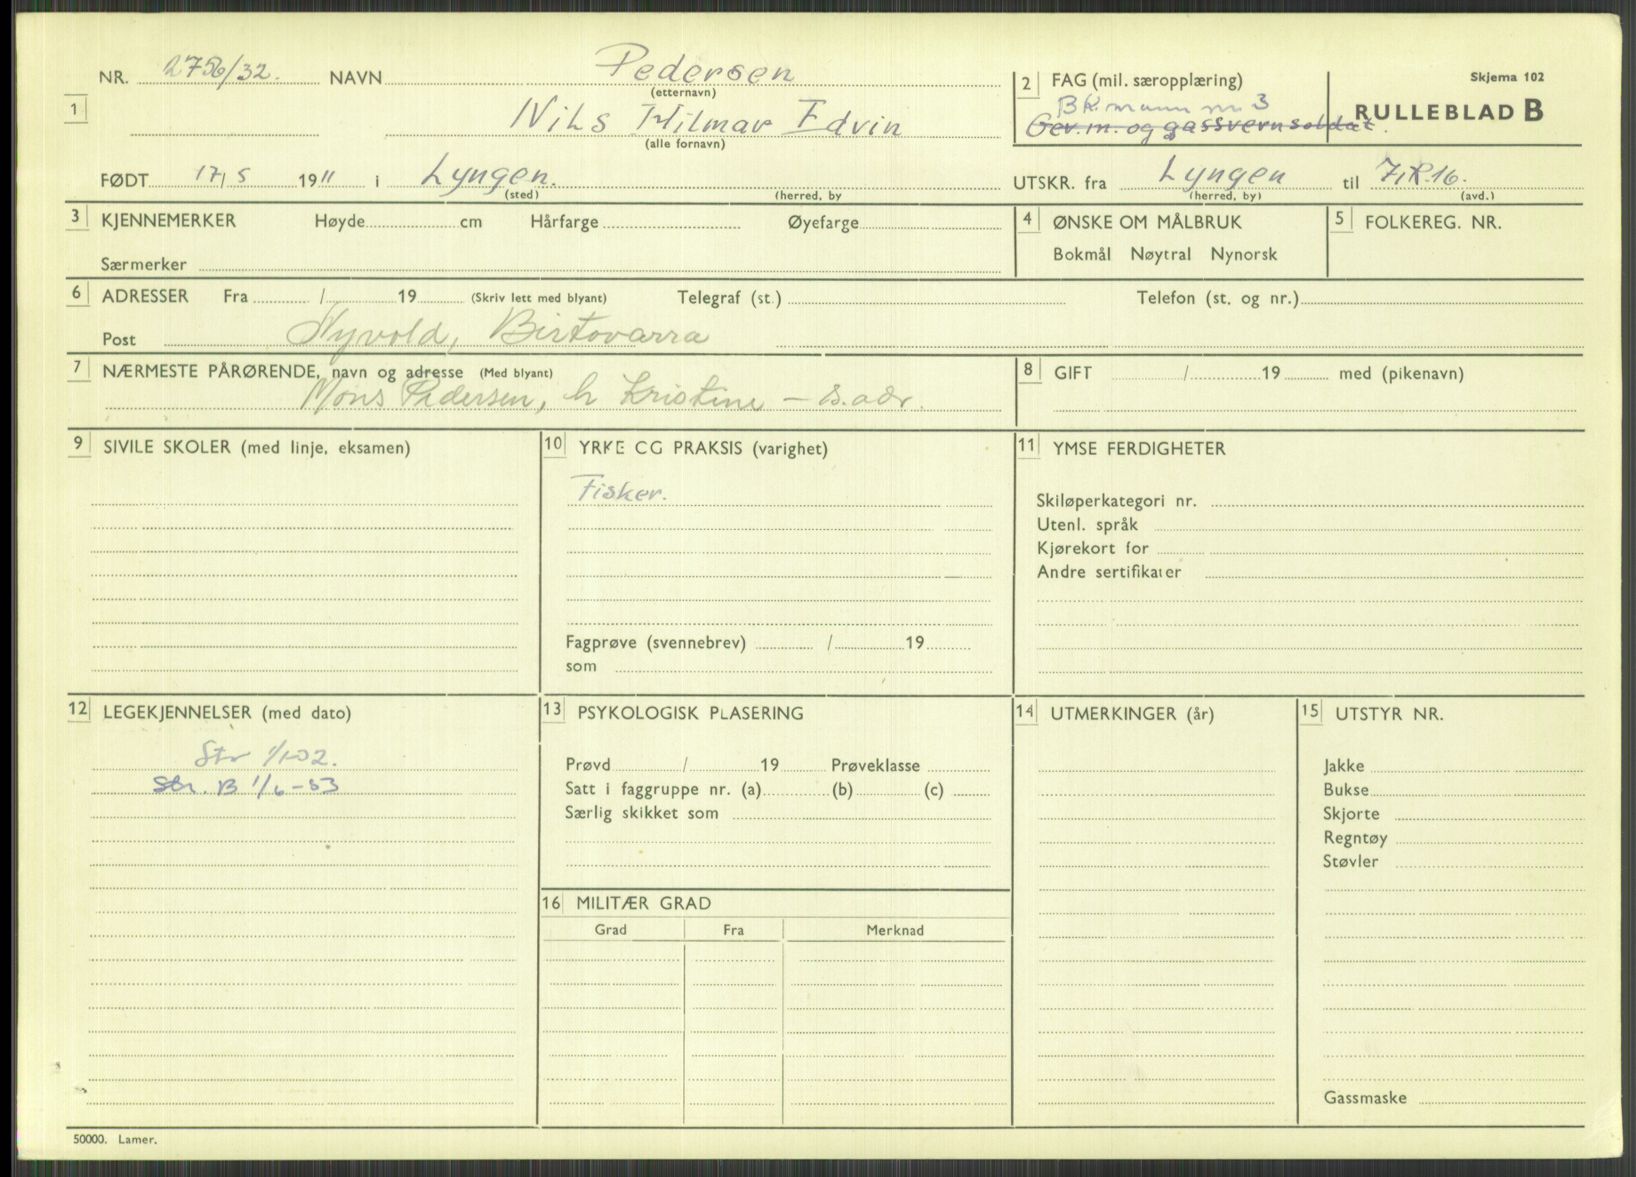 NR. 2756/32. NAVN Pedersen
(etternavn)
1 Nils Hilmar Edvin
(alle fornavn)
2 FAG (mil. særopplæring)
BK.mann nr. 3
Gev.m. og gassvernsoldat.
Skjema 102
RULLEBLAD B
FØDT 17/5 1911 i Lyngen.
(sted) (herred, by
UTSKR. fra Lyngen til 7/IR.16.
(herred, by) (avd.)
3 KJENNEMERKER Høyde cm Hårfarge Øyefarge
Særmerker
4 ØNSKE OM MÅLBRUK
Bokmål Nøytral Nynorsk
5 FOLKEREG. NR.
6 ADRESSER Fra / 19 (Skriv lett med blyant) Telegraf (st.) Telefon (st. og nr.)
Post Nyvold, Birtovarra
7 NÆRMESTE PÅRØRENDE, navn og adresse (Med blyant)
Mons Pedersen, h Kristine – s.adr.
8 GIFT / 19 med (pikenavn)
9 SIVILE SKOLER (med linje, eksamen)
10 YRKE OG PRAKSIS (varighet)
Fisker.
Fagprøve (svennebrev) / 19
som
11 YMSE FERDIGHETER
Skiløperkategori nr.
Utenl. språk
Kjørekort for
Andre sertifikater
12 LEGEKJENNELSER (med dato)
Str
Str. B 1/6-53
13 PSYKOLOGISK PLASERING
Prøvd / 19 Prøveklasse
Satt i faggruppe nr. (a) (b) (c)
Særlig skikket som
14 UTMERKINGER (år)
15 UTSTYR NR.
Jakke
Bukse
Skjorte
Regntøy
Støvler
Gassmaske
16 MILITÆR GRAD
Grad Fra Merknad
50000. Lamer.